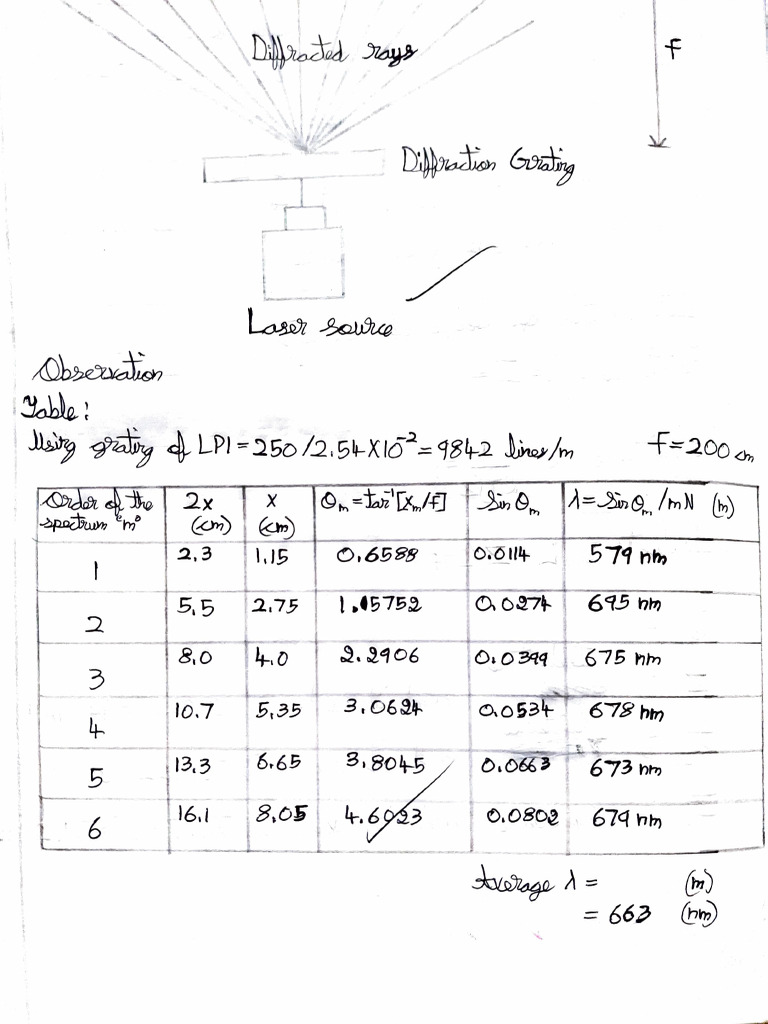 Diffracted rays
f
Diffraction Grating
Laser source
Observation
Table:
Using grating of LPI = 250/2.54 X10⁻² = 9842 lines/m f = 200 cm
Order of the spectrum "m" 2x (cm) x (cm) θm = tan⁻¹[xm/f] Sin θm λ = Sin θm/mN (m)
1 2.3 1.15 0.6588 0.0114 579 nm
2 5.5 2.75 1.5752 0.0274 695 nm
3 8.0 4.0 2.2906 0.0399 675 nm
4 10.7 5.35 3.0624 0.0534 678 nm
5 13.3 6.65 3.8045 0.0663 673 nm
6 16.1 8.05 4.6023 0.0802 679 nm
Average λ = (m)
= 663 (nm)